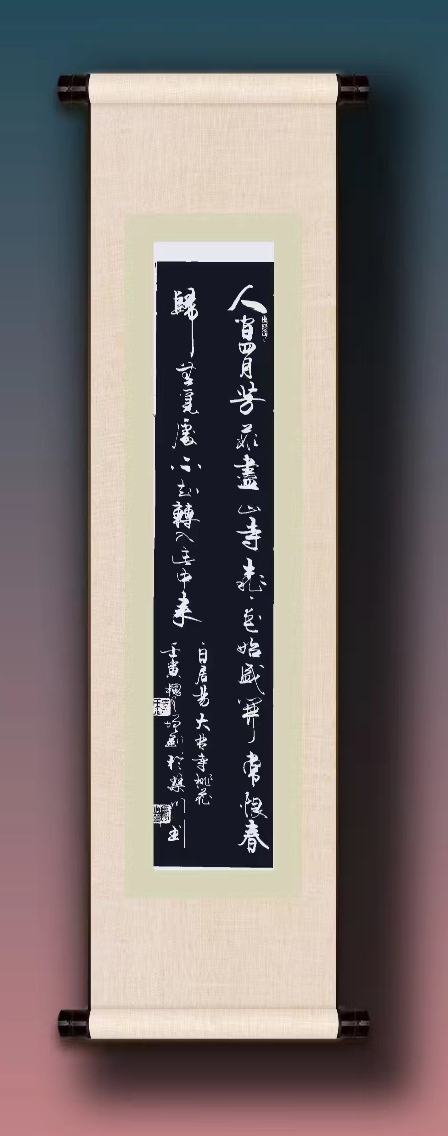 人間四月芳菲盡山寺桃花始盛開常恨春
歸無覓處不知轉入此中来
白居易大林寺桃花
壬寅於川